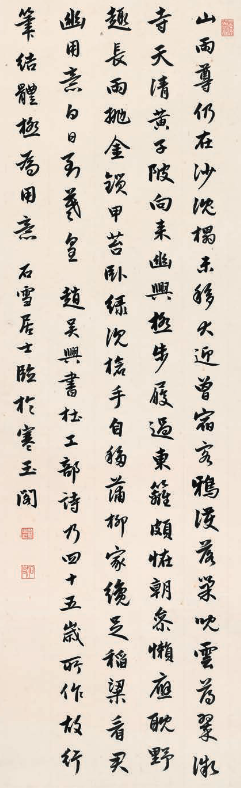 山雨尊仍在沙沈榻未移犬迎曾宿客鴉護落巢兒雲薄翠微
寺天清黃子陂向來幽興極步屧過東籬頗怪朝參懶應耽野
趣長雨拋金鎖甲苔臥綠沈槍手自移蒲柳家纔足稻粱看君
幽用意白日到羲皇 趙吳興書杜工部詩乃四十五歲所作故行
筆結體極為用意 石雪居士臨於寒玉閣